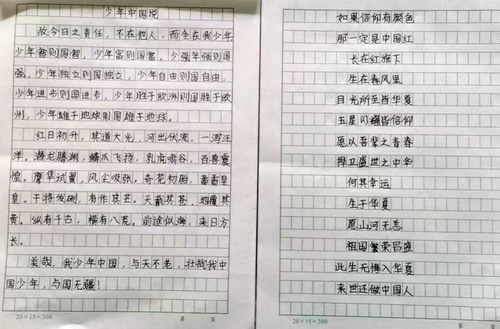 少年中国说
故今日之责任,不在他人,而全在我少年
少年智则国智,少年富则国富,少年强则国
强,少年独立则国独立,少年自由则国自由,
少年进步则国进步,少年胜于欧洲则国胜于欧
洲,少年雄于地球则国雄于地球。
红日初升,其道大光,河出伏流,一泻汪
洋。潜龙腾渊,鳞爪飞扬,乳虎啸谷,百兽震
惶。鹰隼试翼,风尘吸张。奇花初胎,矞矞皇
皇。干将发硎,有作其芒。天戴其苍,地履其
黄。纵有千古,横有八荒。前途似海,来日方
长。
美哉,我少年中国,与天不老,壮哉我中
国少年,与国无疆!
20×15=300
第 页
如果信仰有颜色
那一定是中国红
长在红旗下
生在春风里
目光所至皆华夏
五星闪耀皆信仰
愿以吾辈之青春
捍卫盛世之中华
何其幸运
生于华夏
愿山河无恙
祖国繁荣昌盛
此生无悔入华夏
来世还做中国人
20×15=300
第 页